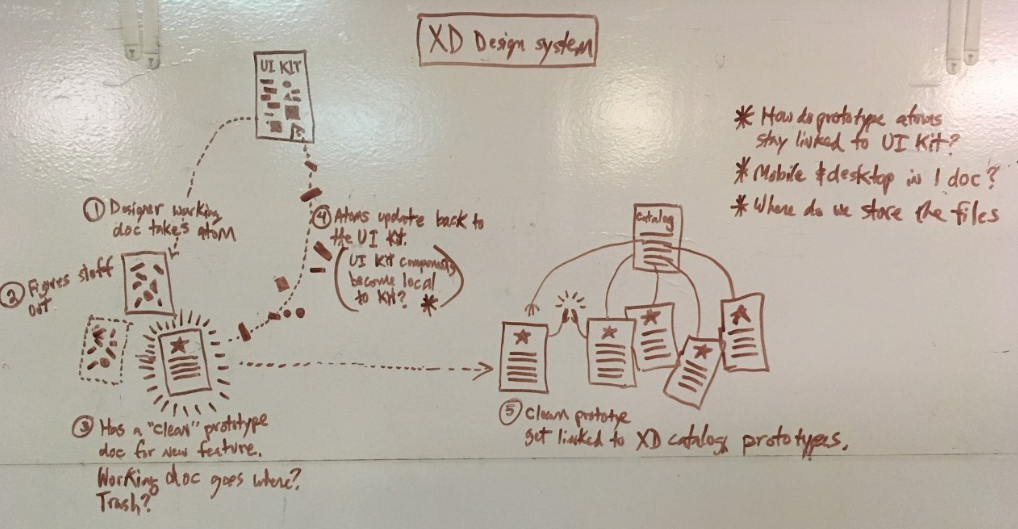 XD Design system
UI KIT
① Designer working
doc takes atom
② Figures stuff
out
③ Has a "clean" prototype
doc for new feature.
Working doc goes where?
Trash?
④ Atoms update back to
the UI Kit.
(UI Kit components
become local
to Kit? *)
catalog
⑤ Clean prototype
get linked to XD catalog prototypes.
* How do prototype atoms
stay linked to UI Kit?
* Mobile & desktop in 1 doc?
* Where do we store the files